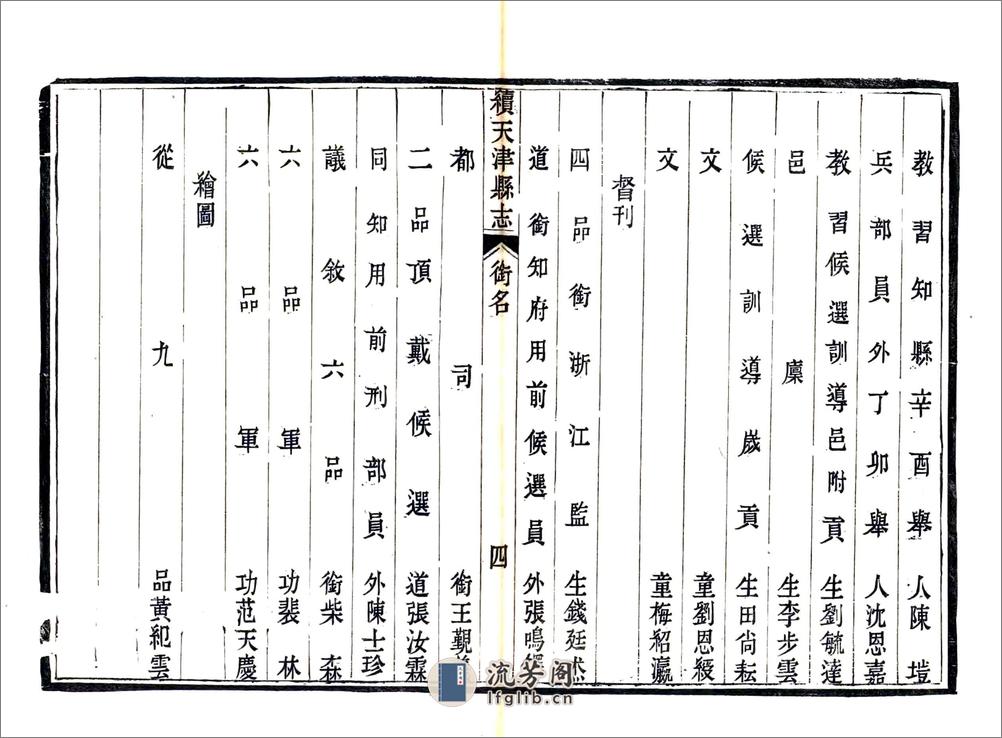 教習知縣辛酉舉人陳塏
兵部員外丁卯舉人沈恩嘉
教習候選訓導邑附貢生劉毓達
邑廩生李步雲
候選訓導歲貢生田尙耘
文童劉恩綬
文童梅紹瀛
督刊
四品銜浙江監生錢廷烋
道銜知府用前候選員外張鳴
續天津縣志
銜名
四
都司銜王觀
二品頂戴候選道張汝霖
同知用前刑部員外陳士珍
議敘六品銜柴森
六品軍功裴林
六品軍功范天慶
繪圖
從九品黃紀雲
流芳阁
glib.cn